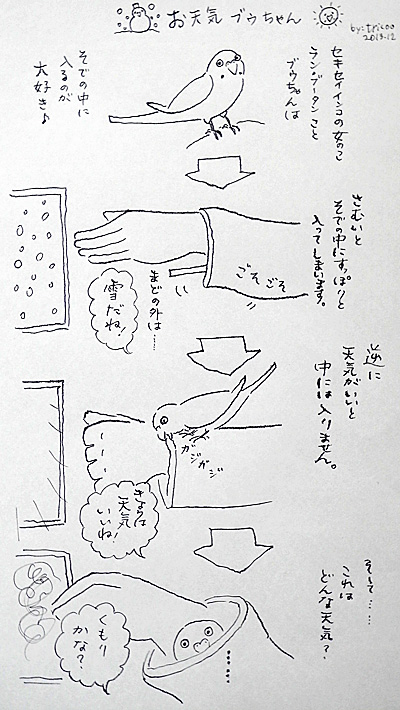 お天気 ブゥちゃん
by:
2013.12
セキセイインコの女のこ
ランブータンこと
ブゥちゃんは
そでの中に
入るのが
大好き♪
さむいと
そでの中にすっぽりと
入ってしまいます。
ごそごそ
まどの外は……
雪だね!
逆に
天気がいいと
中には入りません。
ガジガジ
きょうは
天気
いいね!
そして……
これは
どんな天気?
……
くもり
かな?